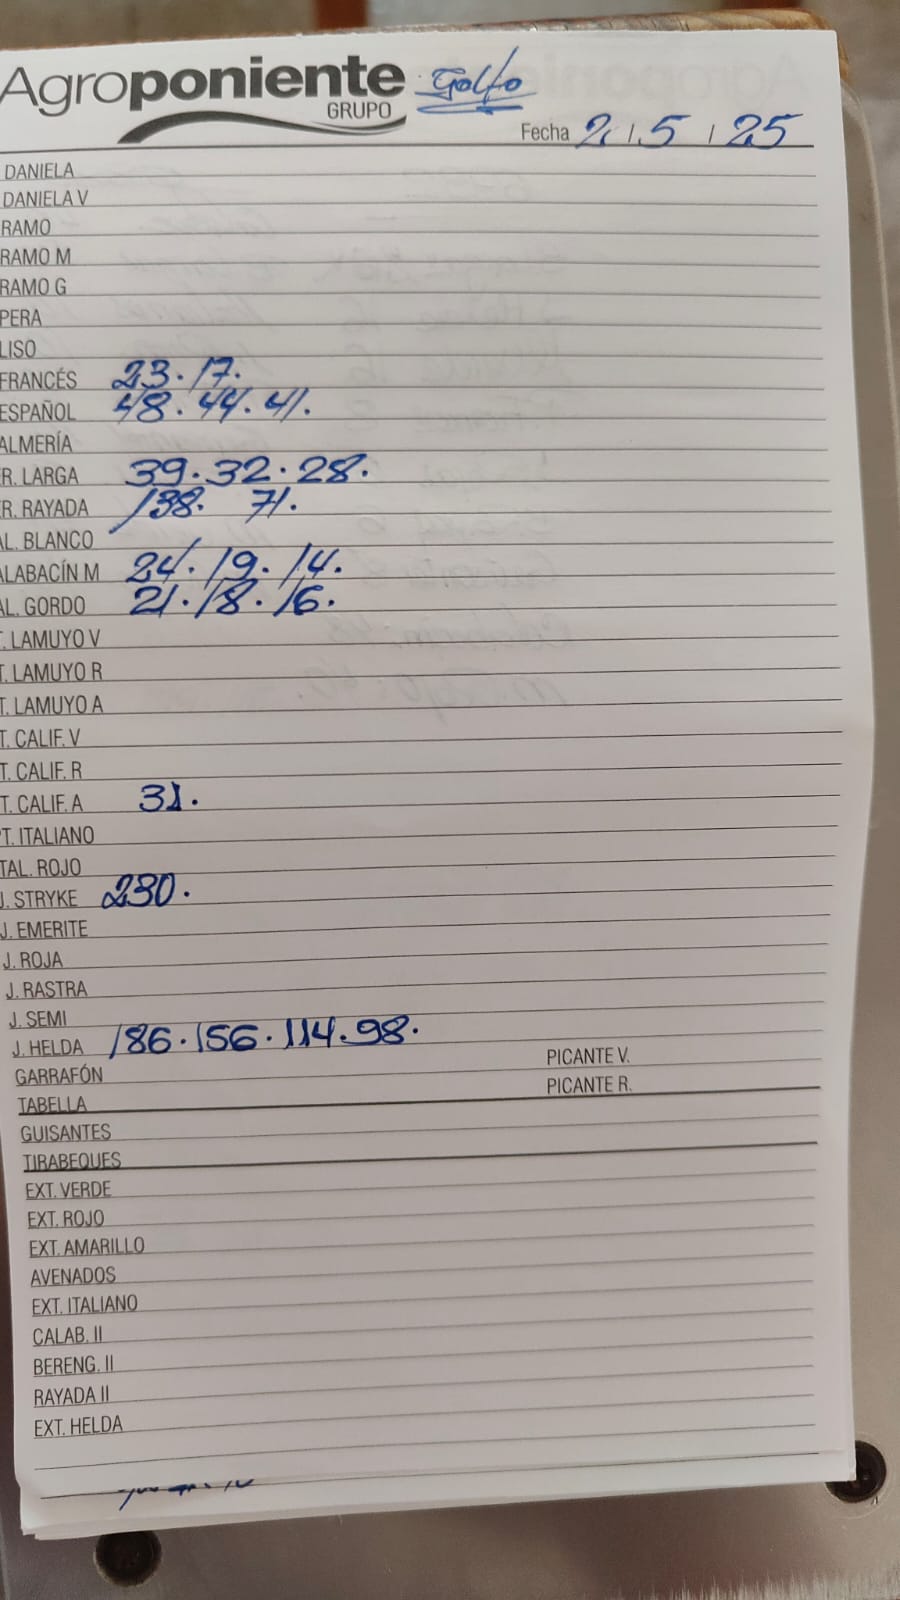 Agroponiente Golfo
GRUPO
Fecha 2 / 5 / 25
DANIELA
DANIELA V
RAMO
RAMO M
RAMO G
PERA
LISO
FRANCÉS 23. 17.
ESPAÑOL 48. 44. 41.
ALMERÍA
R. LARGA 39. 32. 28.
R. RAYADA 138. 71.
AL. BLANCO
ALABACÍN M 24. 19. 14.
AL. GORDO 21. 18. 16.
T. LAMUYO V
T. LAMUYO R
T. LAMUYO A
T. CALIF. V
T. CALIF. R
T. CALIF. A 31.
T. ITALIANO
TAL. ROJO
J. STRYKE 230.
J. EMERITE
J. ROJA
J. RASTRA
J. SEMI
J. HELDA 186. 156. 114. 98.
GARRAFÓN PICANTE V.
TABELLA PICANTE R.
GUISANTES
TIRABEQUES
EXT. VERDE
EXT. ROJO
EXT. AMARILLO
AVENADOS
EXT. ITALIANO
CALAB. II
BERENG. II
RAYADA II
EXT. HELDA